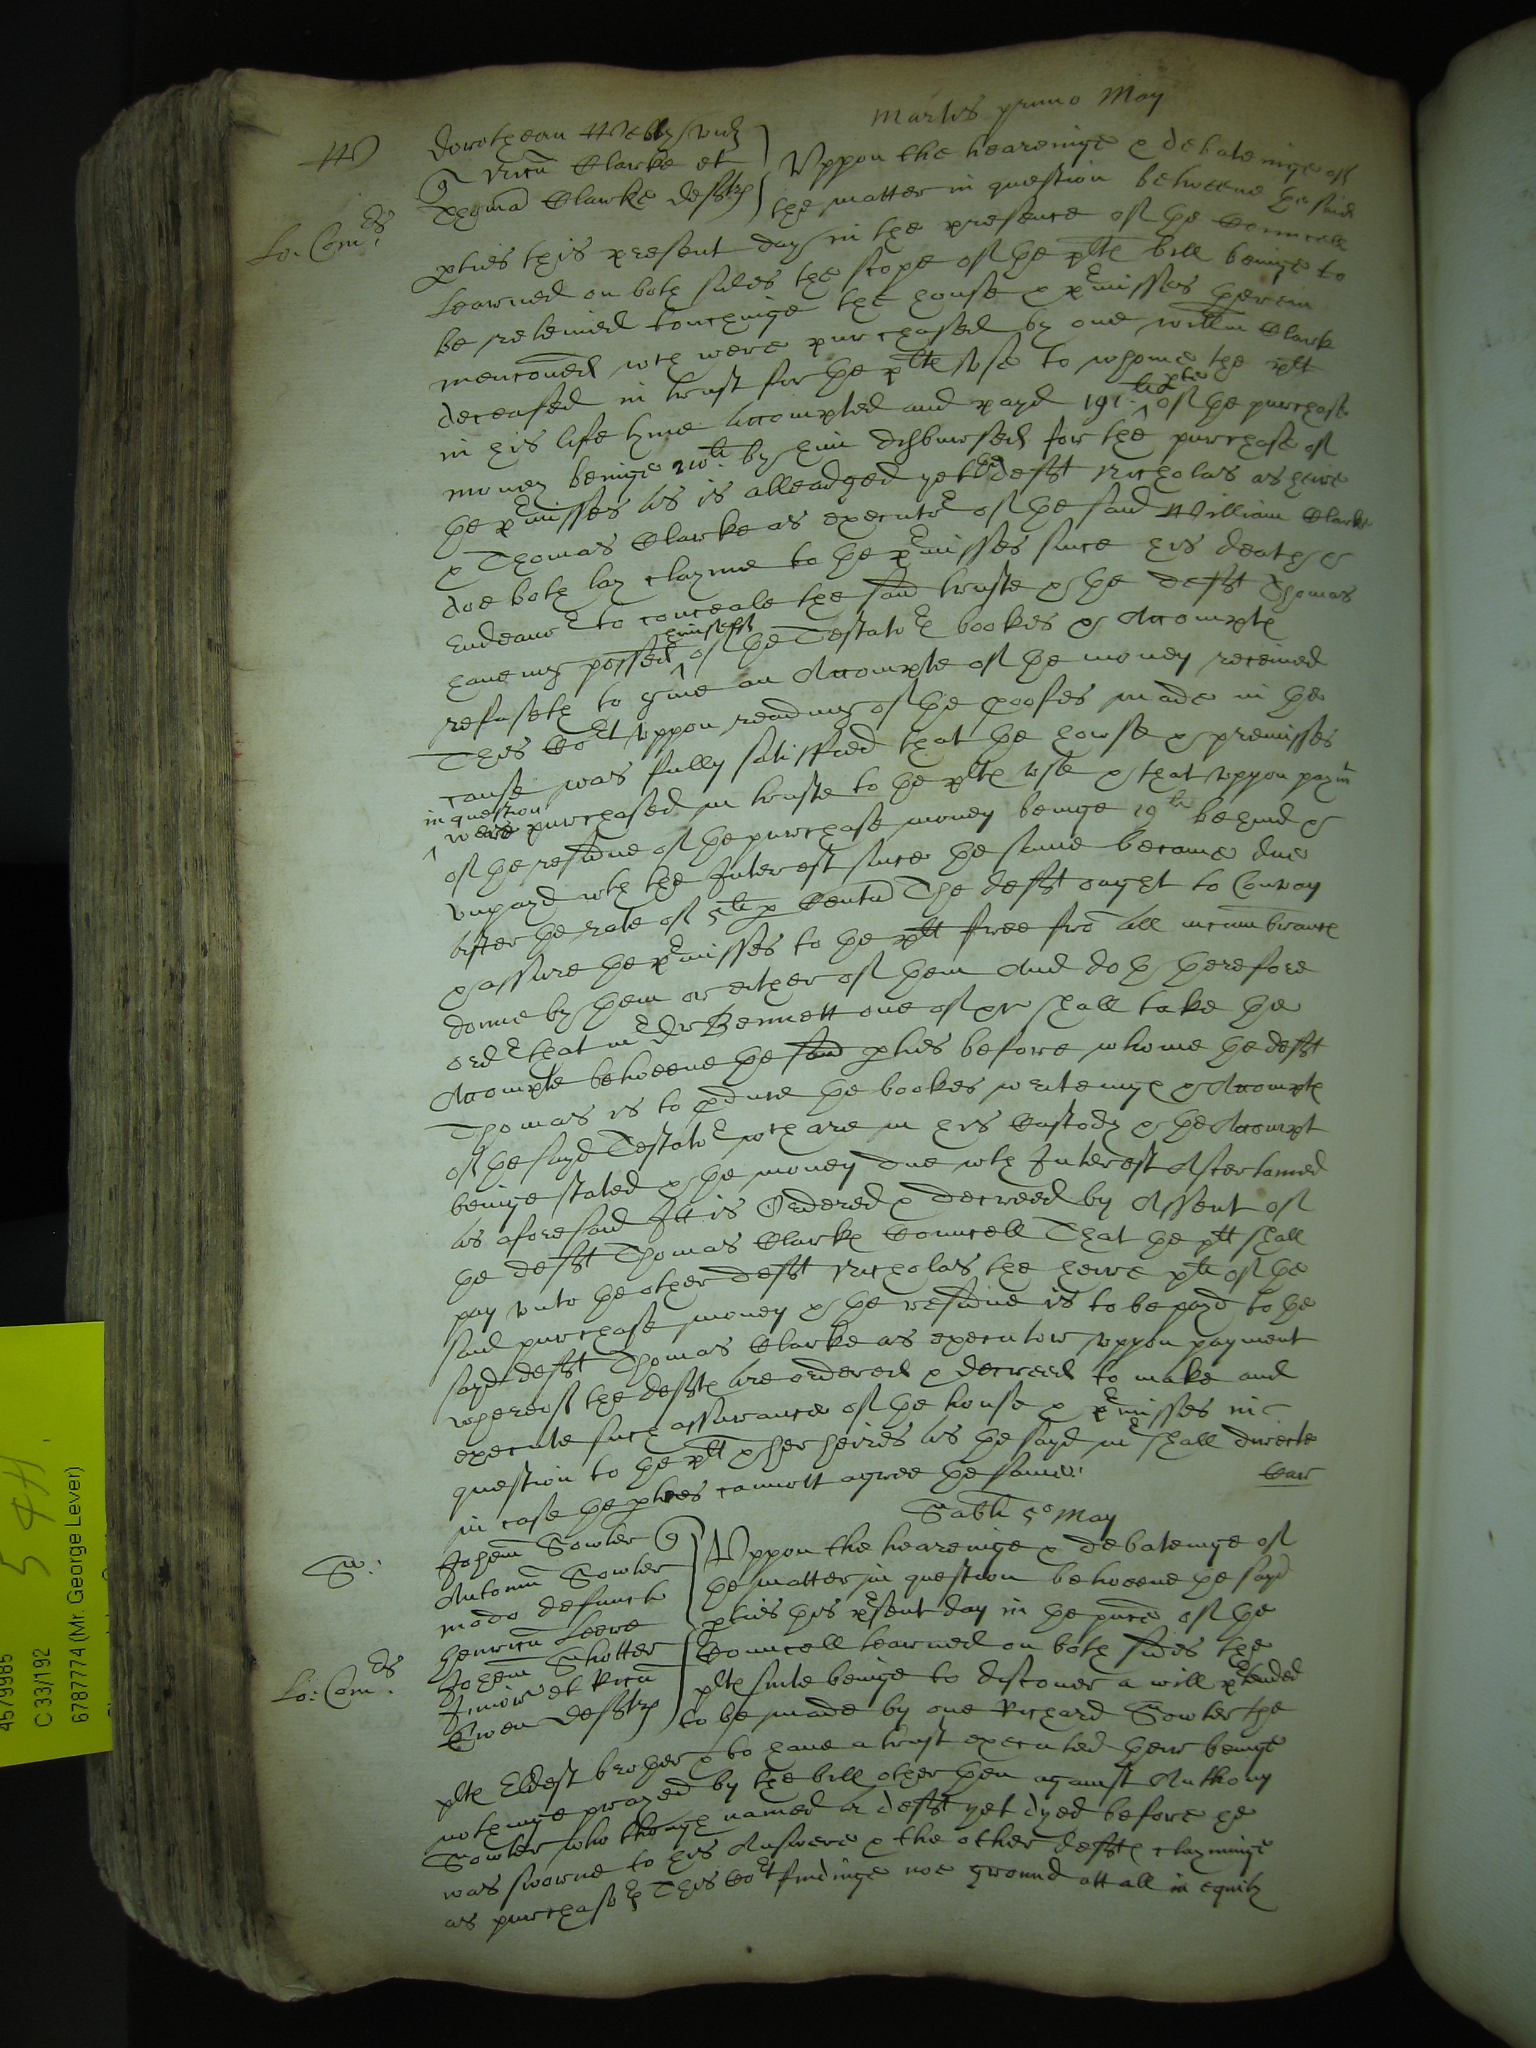 Martis primo May
W
Dorotheam Welby vid
Nicū Clarke et
Thomā Clarke defftes
Uppon the hearinge & debateinge of
the matter in question betweene the said
Lo: Comrs
pties this present day in the presence of the Councell
Learned on both sides the scope of the plts bill beinge to
be releived touchinge the house & prmisses therein
menconed wch were purchased by one Willm Clark
deceased in trust for the plts use to whome the plt
in his life tyme accompted and payd 191li pte of the purchase
money beinge 210li by him disbursed for the purchase of
the prmisses as is alleadged yet the defft Nicholas as heire
& Thomas Clarke as executr of the said William Clarke
doe both lay clayme to the prmisses since his death &
Endeavr to conceale the said truste & the defft Thomas
haveing possed himselfe of the Testators bookes & Accompts
refuseth to give an Accompte of the money received
This Cort uppon reading of the proofes made in the
cause was fully satisfied that the howse & premisses
in question were purchased in truste to the plts use & that uppon paymt
of the residue of the purchase money beinge 19li behind &
unpayd wth the Interest since the same became due
after the rate of 5li p Centū The defft ought to Convay
& assure the prmisses to the plt free frō all incumbrances
donne by them or either of them And doth therefore
ordr that mr Dr Bennett one of & shall take the
Accompte betweene the said pties before whome the defft
Thomas is to pduce the bookes writeings & Accompts
of the sayd Testatr wch are in his Custody & the Accompt
beinge stated & the money due wth Interest Assertained
as aforesaid Itt is Ordered & decreed by Assent of
the defft Thomas Clarks Councell That the plt shall
pay unto the other defft Nicholas the heire of the
said purchase money & the residue is to be payd to the
sayd defft Thomas Clarke as executor uppon payment
whereof the deffts are ordered & decreed to make and
execute such assurance of the house & prmisses in
question to the plt & her heires as the sayd mr shall directe
in case the pties cannott agree the same.
Sabti 5o May
Sw:
Johem Sowter
Antoniū Sowter
modo defunct
Henricū Leere
Johem Shotter
Juniorē et Ricū
Ewen defftes
Lo: Comrs
Uppon the hearinge & debateinge of
the matter in question betweene the sayd
pties this prsent day in the pnce of the
Councell learned on both sides the
plts suite beinge to discover a will prtended
to be made by one Richard Sowter the
plts Eldest brother & to have a trust executed there beinge
nothinge prayed by the bill other then against Anthony
Sowter who though named a defft yet dyed before he
was sworne to his Answere & the other deffts clayminge
as purchasors This Cort findinge noe ground att all in equity